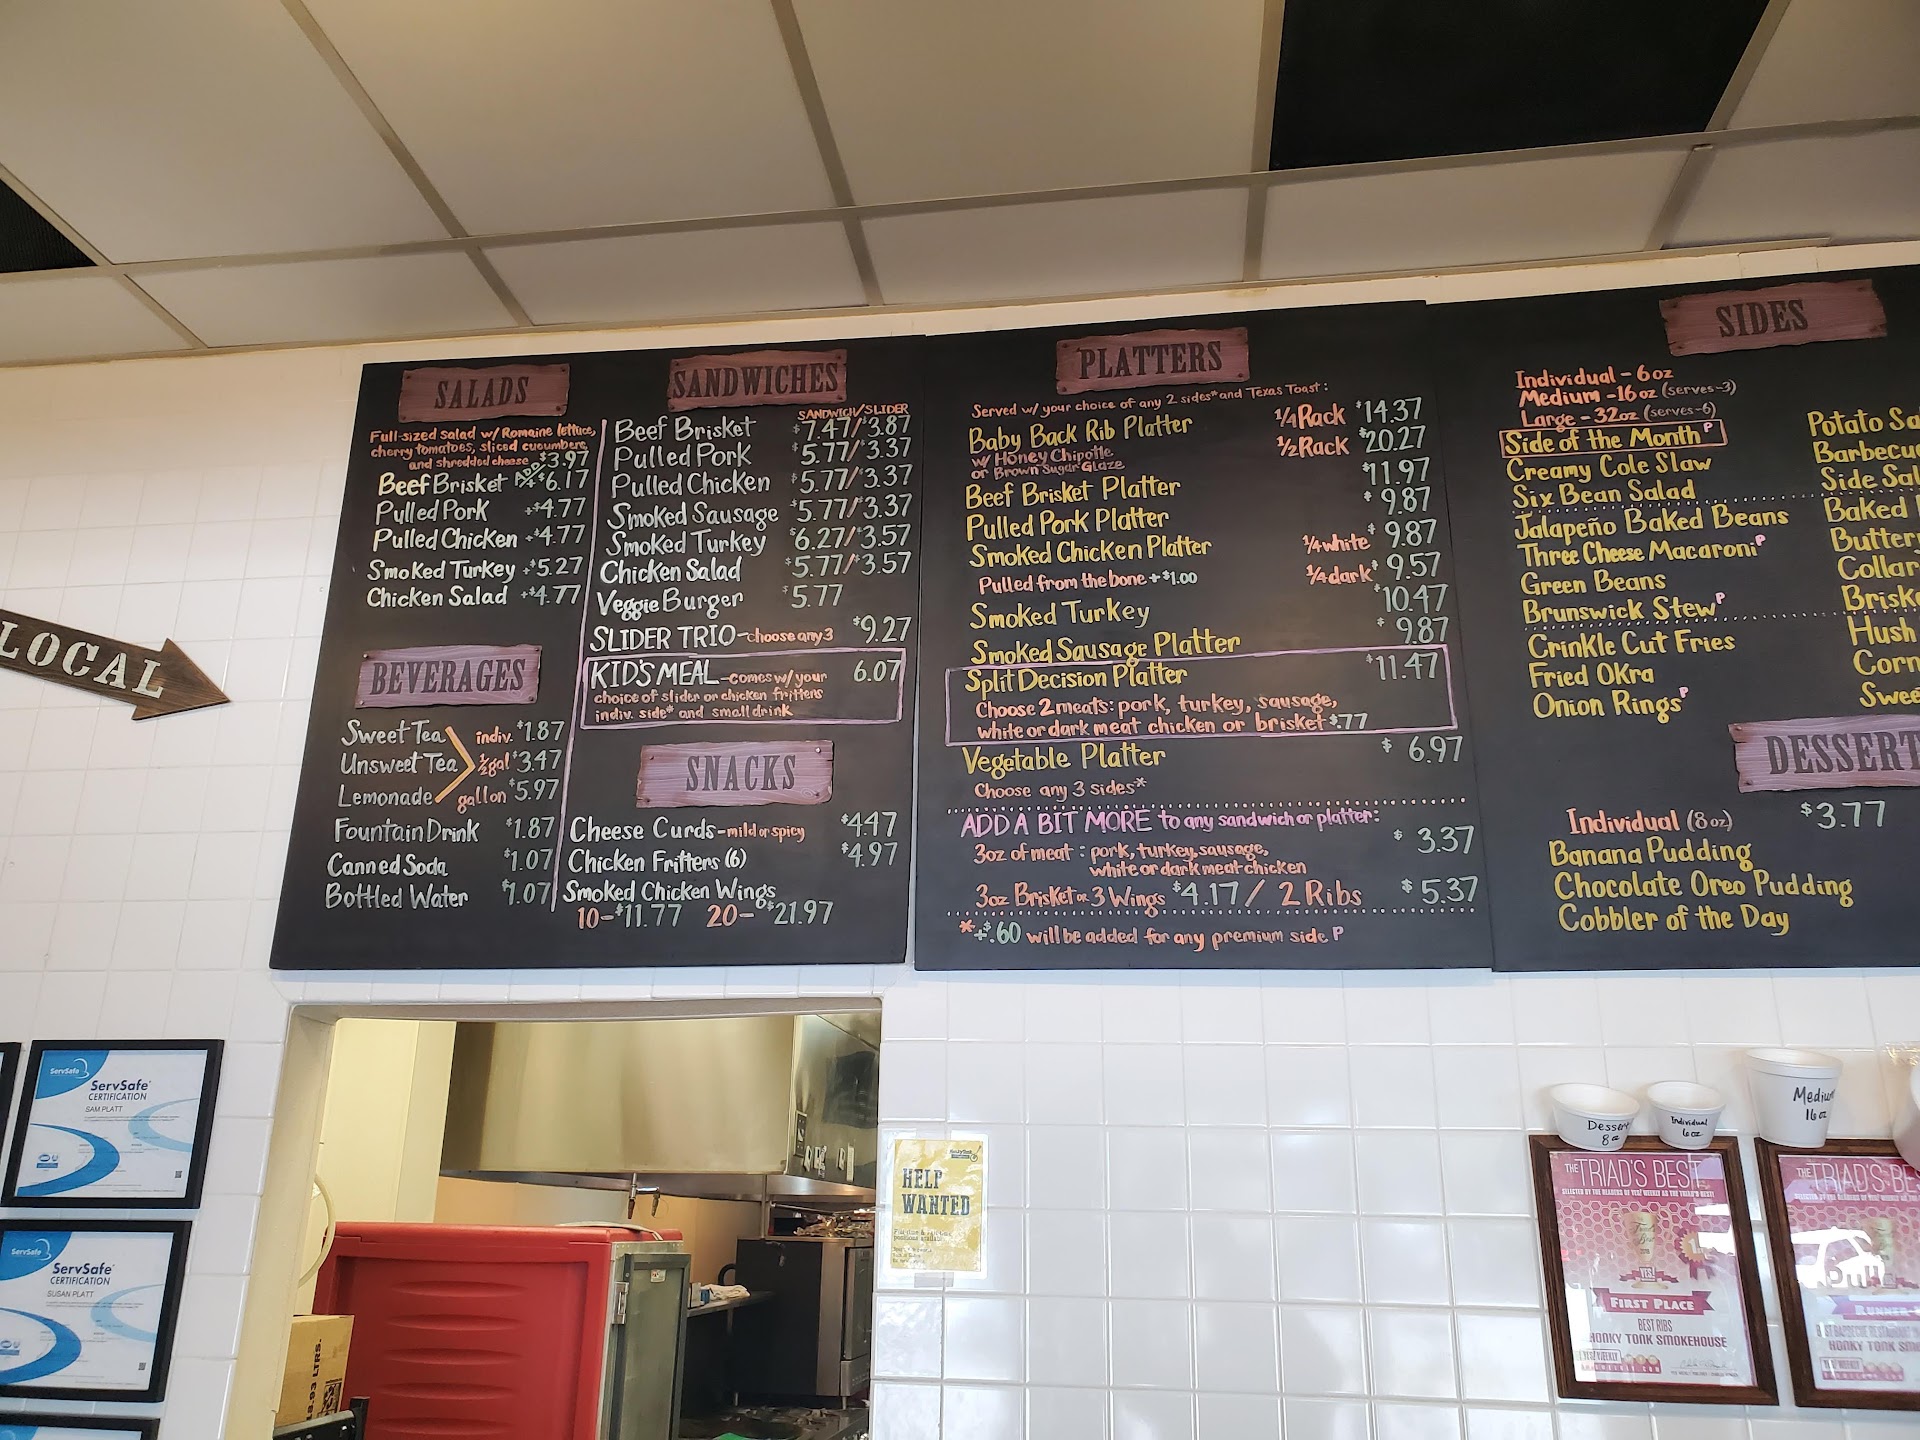 LOCAL
SALADS
Full-sized salad w/ Romaine lettuce,
cherry tomatoes, sliced cucumbers,
and shredded cheese $3.97
Beef Brisket ADD +$6.17
Pulled Pork +$4.77
Pulled Chicken +$4.77
Smoked Turkey +$5.27
Chicken Salad +$4.77
BEVERAGES
Sweet Tea indiv. $1.87
Unsweet Tea ½gal $3.47
Lemonade gallon $5.97
Fountain Drink $1.87
Canned Soda $1.07
Bottled Water $1.07
SANDWICHES
SANDWICH/SLIDER
Beef Brisket $7.47/$3.87
Pulled Pork $5.77/$3.37
Pulled Chicken $5.77/$3.37
Smoked Sausage $5.77/$3.37
Smoked Turkey $6.27/$3.57
Chicken Salad $5.77/$3.57
Veggie Burger $5.77
SLIDER TRIO-choose any 3 $9.27
KID'S MEAL-comes w/ your 6.07
choice of slider or chicken fritters
indiv. side* and small drink
SNACKS
Cheese Curds-mild or spicy $4.47
Chicken Fritters (6) $4.97
Smoked Chicken Wings
10-$11.77 20-$21.97
PLATTERS
Served w/ your choice of any 2 sides* and Texas Toast:
Baby Back Rib Platter ¼Rack $14.37
w/ Honey Chipotle ½Rack $20.27
or Brown Sugar Glaze
Beef Brisket Platter $11.97
Pulled Pork Platter $9.87
Smoked Chicken Platter ¼white $9.87
Pulled from the bone +$1.00 ¼dark $9.57
Smoked Turkey $10.47
Smoked Sausage Platter $9.87
Split Decision Platter $11.47
Choose 2 meats: pork, turkey, sausage,
white or dark meat chicken or brisket +$.77
Vegetable Platter $6.97
Choose any 3 sides*
ADD A BIT MORE to any sandwich or platter:
3oz of meat: pork, turkey, sausage, $3.37
white or dark meat chicken
3oz Brisket or 3 Wings $4.17/ 2 Ribs $5.37
*+$.60 will be added for any premium side P
SIDES
Individual - 6oz
Medium -16oz (serves-3)
Large - 32oz (serves-6)
Side of the Month P
Creamy Cole Slaw
Six Bean Salad
Jalapeño Baked Beans
Three Cheese Macaroni P
Green Beans
Brunswick Stew P
Crinkle Cut Fries
Fried Okra
Onion Rings P
Potato Sa
Barbecu
Side Sal
Baked
Butter
Collar
Briske
Hush
Corn
Swee
DESSERT
Individual (8oz) $3.77
Banana Pudding
Chocolate Oreo Pudding
Cobbler of the Day
ServSafe
ServSafe
CERTIFICATION
SAM PLATT
ServSafe
ServSafe
CERTIFICATION
SUSAN PLATT
18.93 LTRS.
HELP
WANTED
Dessert
8oz
Individual
6oz
Medium
16oz
THE TRIAD'S BEST
SELECTED BY THE READERS OF YES! WEEKLY AS THE TRIAD'S BEST!
YES!
FIRST PLACE
BEST RIBS
HONKY TONK SMOKEHOUSE
YES! WEEKLY
THE TRIAD'S BE
RUNNER-
HONKY TONK SM